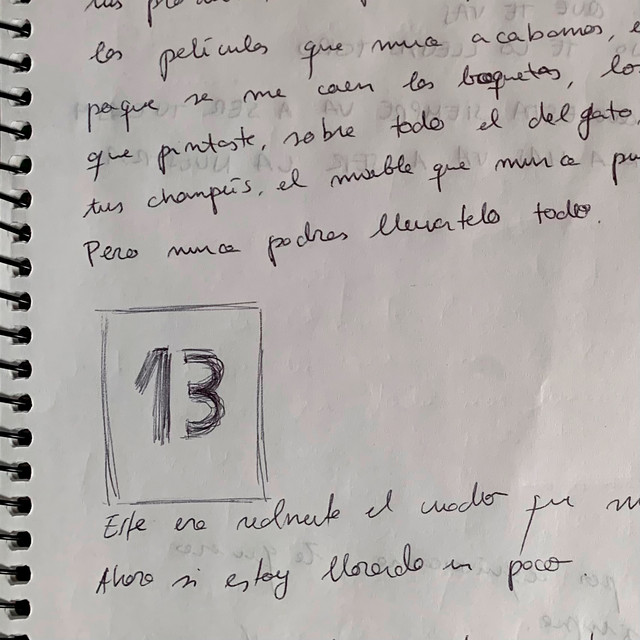 las películas que nunca acabamos,
porque se me caen los boquetes, los
que pintaste, sobre todo el del gato,
tus champús, el mueble que nunca
Pero nunca podras llevartelo todo.
13
Este era realmente el cuadro que
Ahora si estoy llorando un poco